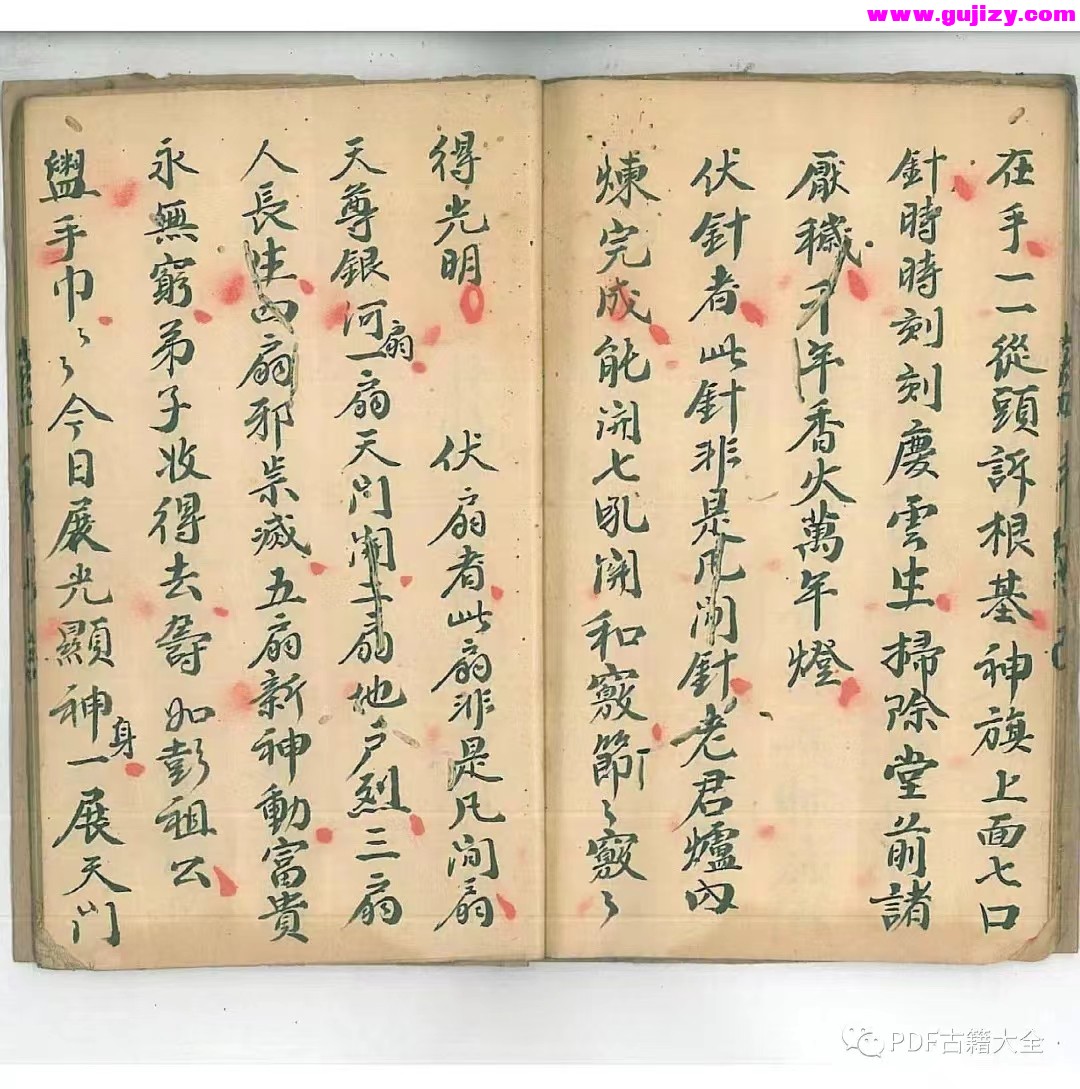 www.gujizy.com
在手一一從頭訴根基神旗上面七口
針時時刻刻慶雲生掃除堂前諸
厭穢千年香火萬年燈
伏針者此針非是凢間針老君爐內
煉完成能開七孔開和竅節〻竅〻
得光明 伏扇者此扇非是凡间扇
天尊銀河一扇扇天门開二扇地户烈三扇
人長生四扇邪祟滅五扇新神動富貴
永無窮弟子收得去壽如彭祖公
盥手巾〻〻今日展光顯神身一展天门
PDF古籍大全